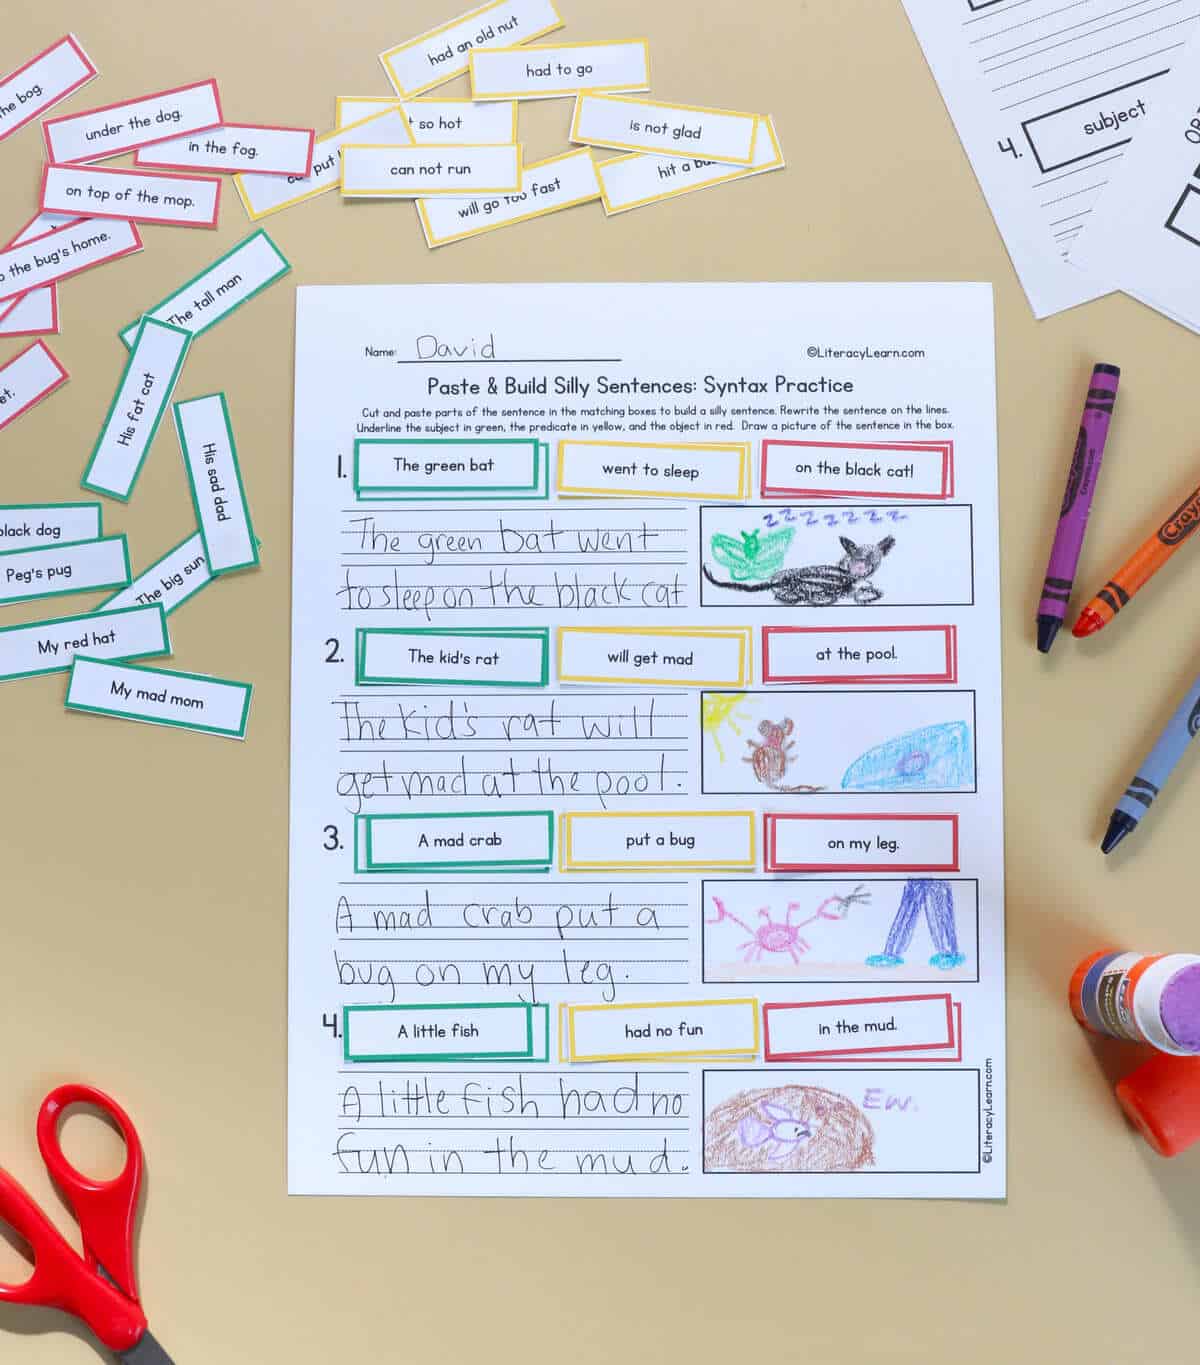 had an old nut
had to go
so hot
is not glad
put
can not run
hit a
will go too fast
the bog.
under the dog.
in the fog.
on top of the mop.
the bug's home.
The tall man
His fat cat
His sad dad
black dog
Peg's pug
The big sun
My red hat
My mad mom
4. subject
Name: David
©LiteracyLearn.com
Paste & Build Silly Sentences: Syntax Practice
Cut and paste parts of the sentence in the matching boxes to build a silly sentence. Rewrite the sentence on the lines.
Underline the subject in green, the predicate in yellow, and the object in red. Draw a picture of the sentence in the box.
1. The green bat went to sleep on the black cat!
The green bat went
to sleep on the black cat
zzzzzzzz
2. The kid's rat will get mad at the pool.
The kid's rat will
get mad at the pool.
3. A mad crab put a bug on my leg.
A mad crab put a
bug on my leg.
4. A little fish had no fun in the mud.
A little fish had no
fun in the mud.
Ew.
©LiteracyLearn.com
Crayola